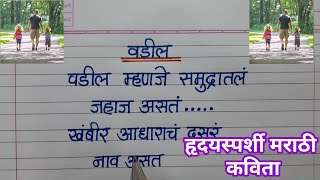 वडील
वडील म्हणजे समुद्रातलं
जहाज असतं.....
खंबीर आधाराचं दुसरं
नाव असत
हृदयस्पर्शी मराठी
कविता